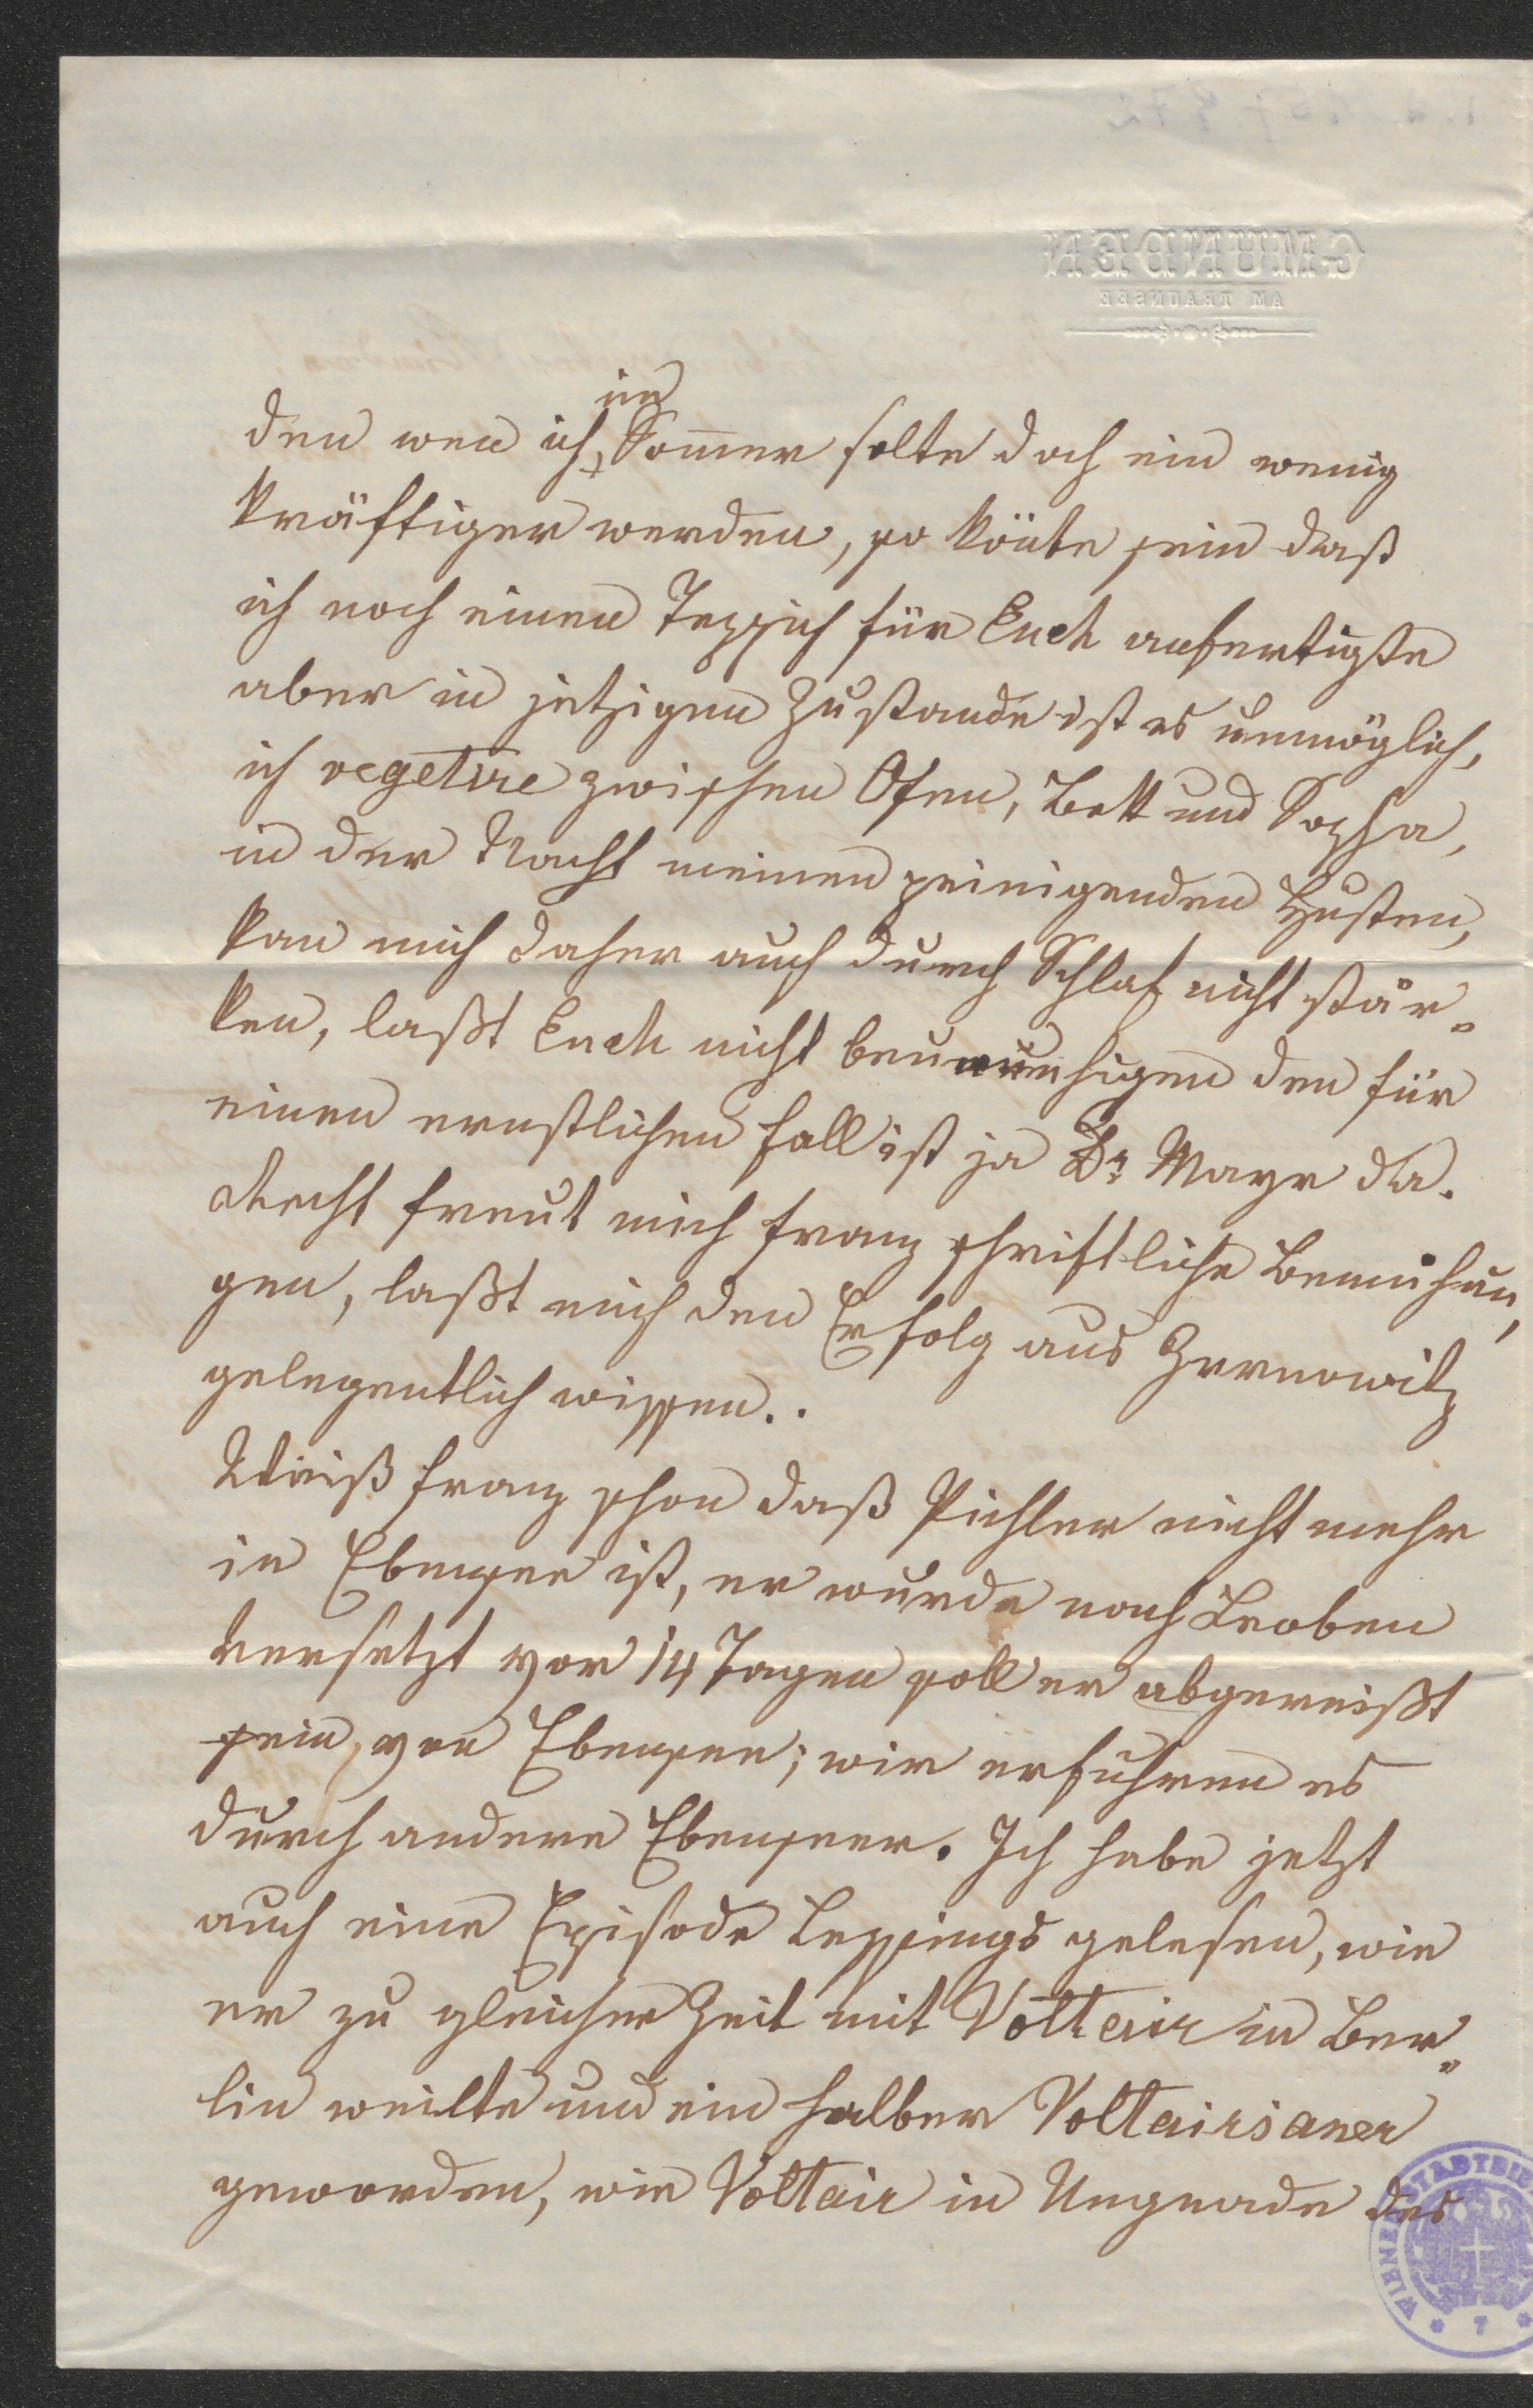 GMUNDEN
AM TRAUNSEE
im
den wen ich Som̄er solte doch ein wenig
kräftiger werden, so könte sein daß
ich noch einen Teppich für Euch anfertigte
aber in jetzigen Zustande ist es unmöglich,
ich vegetire zwischen Ofen, Bett und Sopha,
in der Nacht meinen peinigenden Husten,
kan mich daher auch durch Schlaf nicht stär„
ken, laßt Euch nicht beunruhigen den für
einen ernstlichen Fall ist ja Dr Mayr da.
Recht freut mich Franz schriftliche Bemühun,
gen, laßt mich den Erfolg aus Zernowitz
gelegentlich wissen..
Weiß Franz schon daß Pichler nicht mehr
in Ebensee ist, er wurde nach Leoben
versetzt vor 14 Tagen soll er abgereißt
sein, von Ebensee; wir erfuhren es
durch andere Ebenseer. Ich habe jetzt
auch eine Episode Lessings gelesen, wie
er zu gleicher Zeit mit Voltair in Ber„
lin weilte und ein halber Voltairianer
geworden, wie Voltair in Ungnade des
WIENER STADTBI
* 7 *